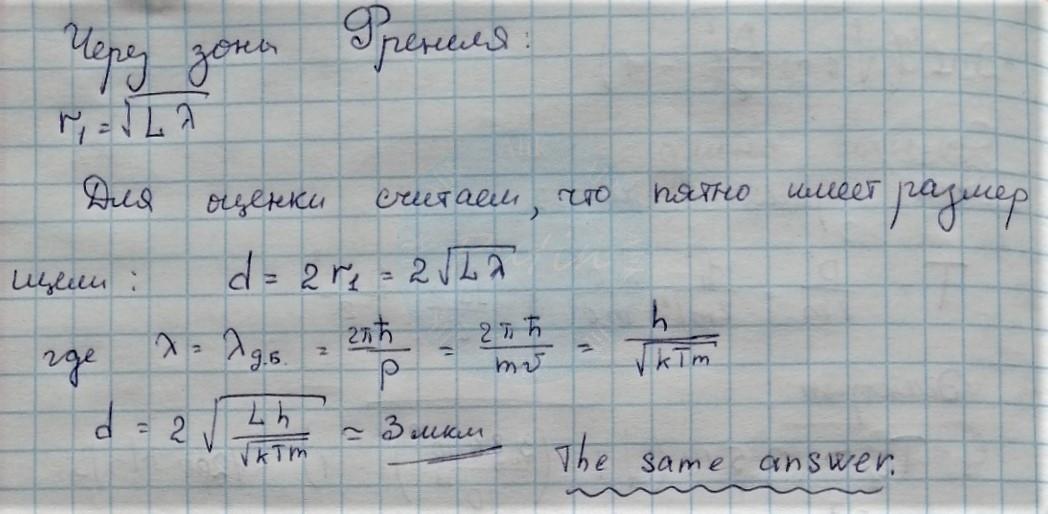 Через зоны Френеля:
r₁ = √(Lλ)
Для оценки считаем, что пятно имеет размер
щели: d = 2r₁ = 2√(Lλ)
где λ = λд.б. = 2πħ/p = 2πħ/mv = h/√(kTm)
d = 2√(Lh/√(kTm)) ≃ 3 мкм
The same answer.